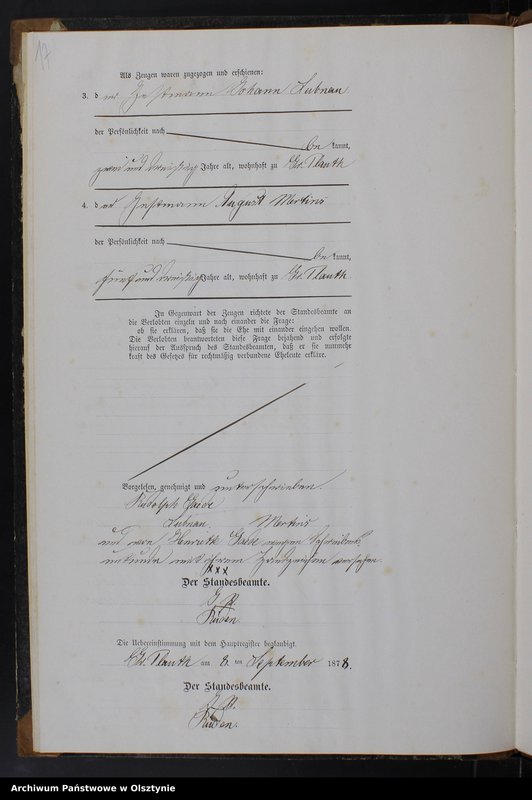 17
Als Zeugen waren zugezogen und erschienen:
3. der Instmann Johann Lubnau
der Persönlichkeit nach
be kannt,
zwei und dreißig Jahre alt, wohnhaft zu Gr. Plauth
4. der Instmann August Martins
der Persönlichkeit nach
be kannt,
fünf und dreißig Jahre alt, wohnhaft zu Gr. Plauth.
In Gegenwart der Zeugen richtete der Standesbeamte an
die Verlobten einzeln und nach einander die Frage:
ob sie erklären, daß sie die Ehe mit einander eingehen wollen.
Die Verlobten beantworteten diese Frage bejahend und erfolgte
hierauf der Ausspruch des Standesbeamten, daß er sie nunmehr
kraft des Gesetzes für rechtmäßig verbundene Eheleute erkläre.
Vorgelesen, genehmigt und unterschrieben
Rudolph Gaede
Lubnau. Martins
und von wegen Schreibens
unkunde mit ihrem Handzeichen versehen.
xxx
Der Standesbeamte.
Die Uebereinstimmung mit dem Hauptregister beglaubigt.
Gr. Plauth am 8. ten September 1878.
Der Standesbeamte.
Archiwum Państwowe w Olsztynie